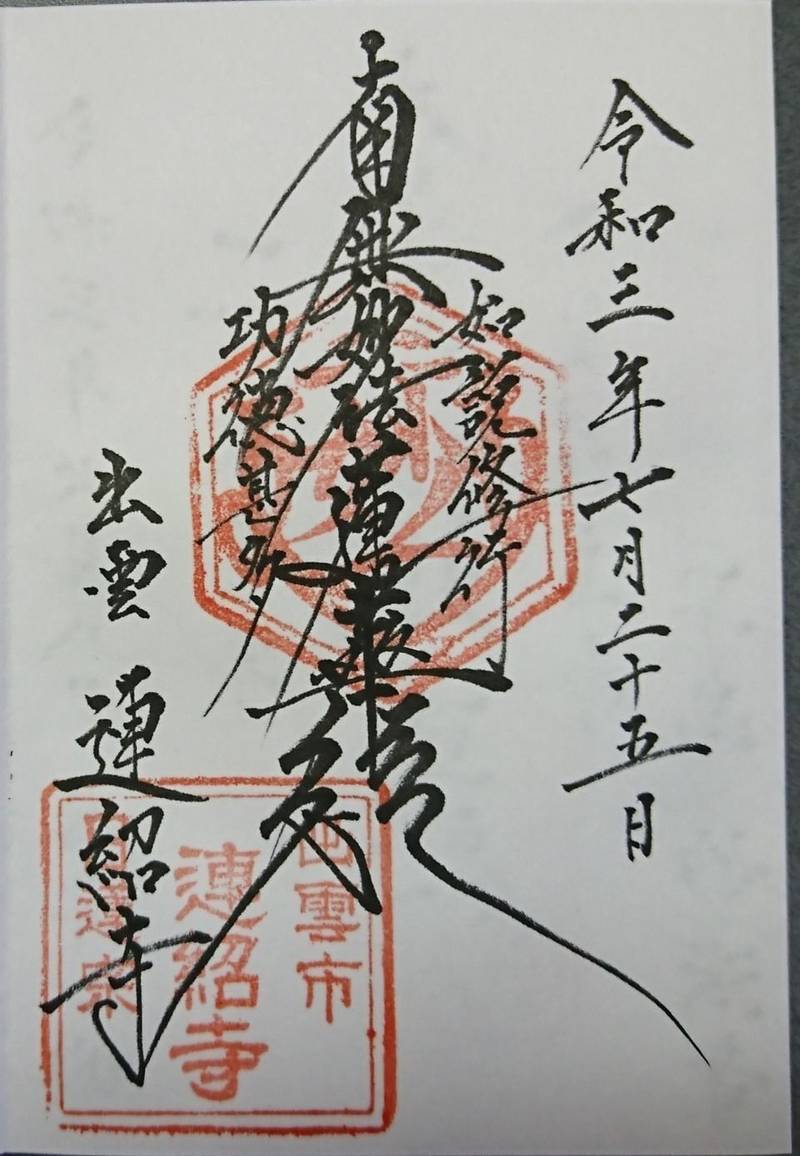 令和三年七月二十五日
如説修行
南無妙法蓮華経
功徳甚多
出雲 蓮紹寺
出雲市
蓮紹寺
日蓮宗